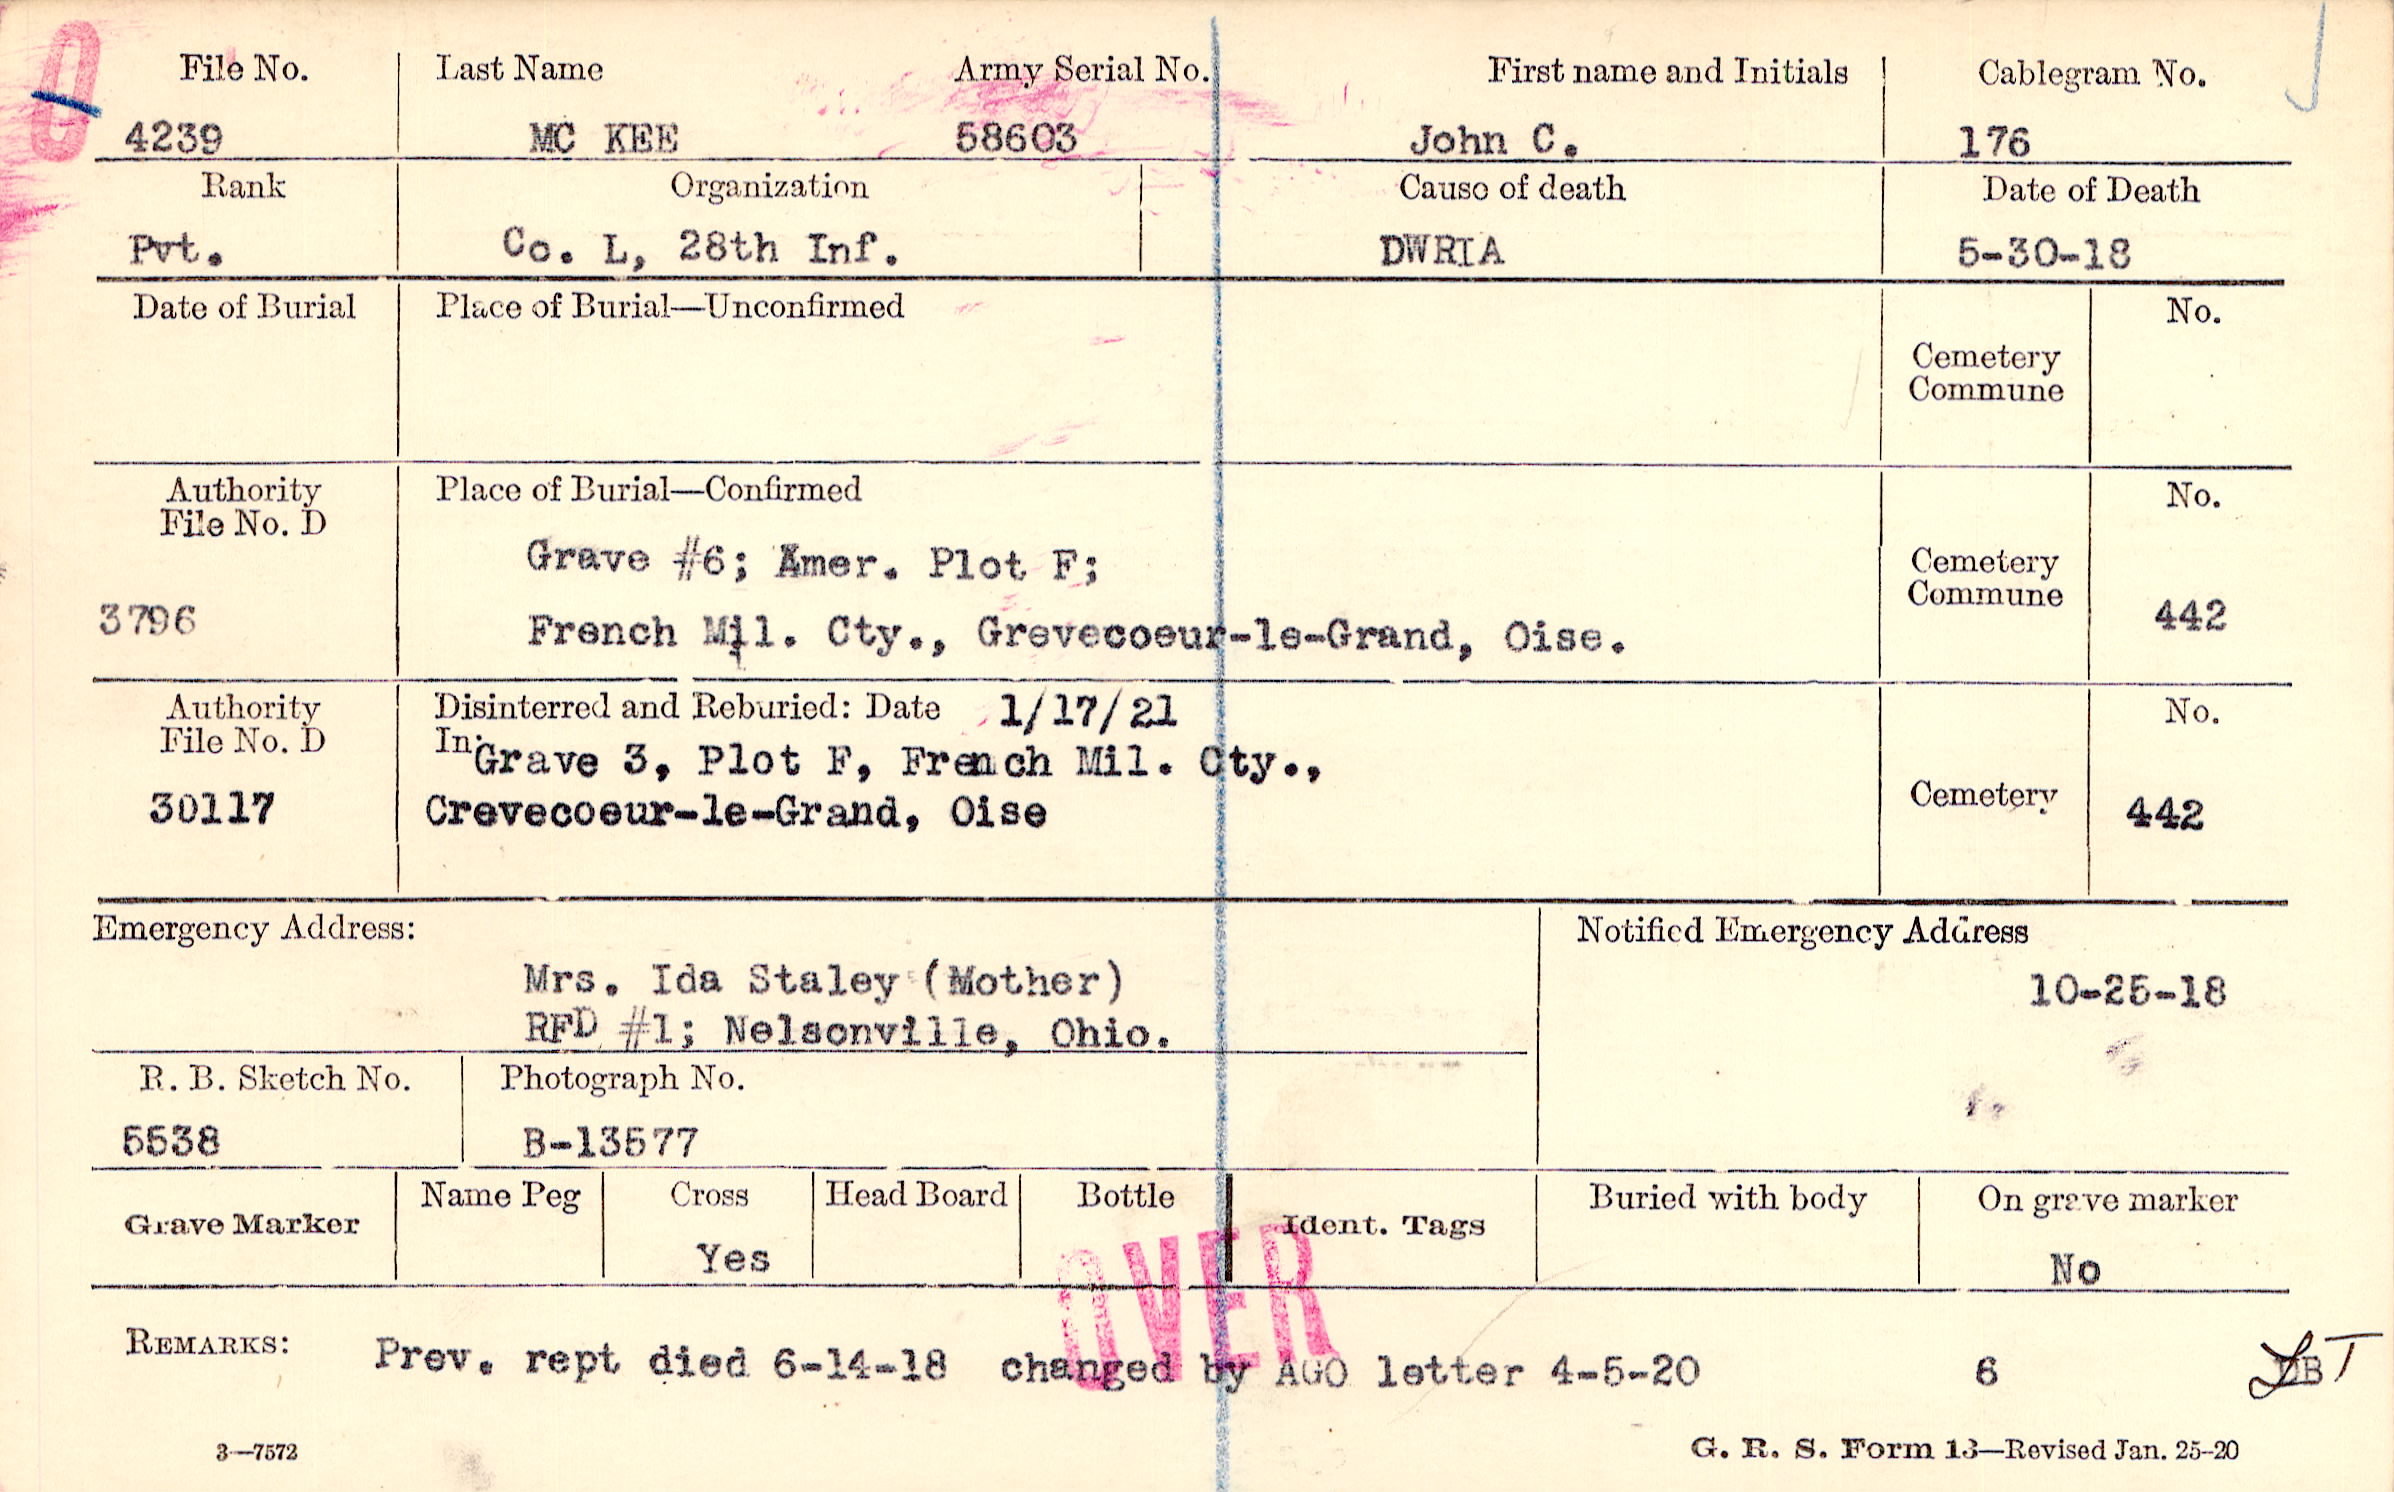 File No. Last Name Army Serial No. First name and Initials Cablegram No.
4239 MC KEE 58603 John C. 176
Rank Organization Cause of death Date of Death
Pvt. Co. L, 28th Inf. DWRIA 5-30-18
Date of Burial Place of Burial—Unconfirmed No.
Cemetery
Commune
Authority Place of Burial—Confirmed No.
File No. D
Grave #6; Amer. Plot F;
Cemetery
Commune
3796 French Mil. Cty., Grevecoeur-le-Grand, Oise. 442
Authority Disinterred and Reburied: Date 1/17/21 No.
File No. D In: Grave 3, Plot F, French Mil. Cty.,
30117 Crevecoeur-le-Grand, Oise Cemetery 442
Emergency Address: Notified Emergency Address
Mrs. Ida Staley (Mother) 10-25-18
RFD #1; Nelsonville, Ohio.
R. B. Sketch No. Photograph No.
5538 B-13577
Grave Marker Name Peg Cross Head Board Bottle Ident. Tags Buried with body On grave marker
Yes No
OVER
REMARKS: Prev. rept died 6-14-18 changed by AGO letter 4-5-20 6
3—7572 G. R. S. Form 13—Revised Jan. 25-20